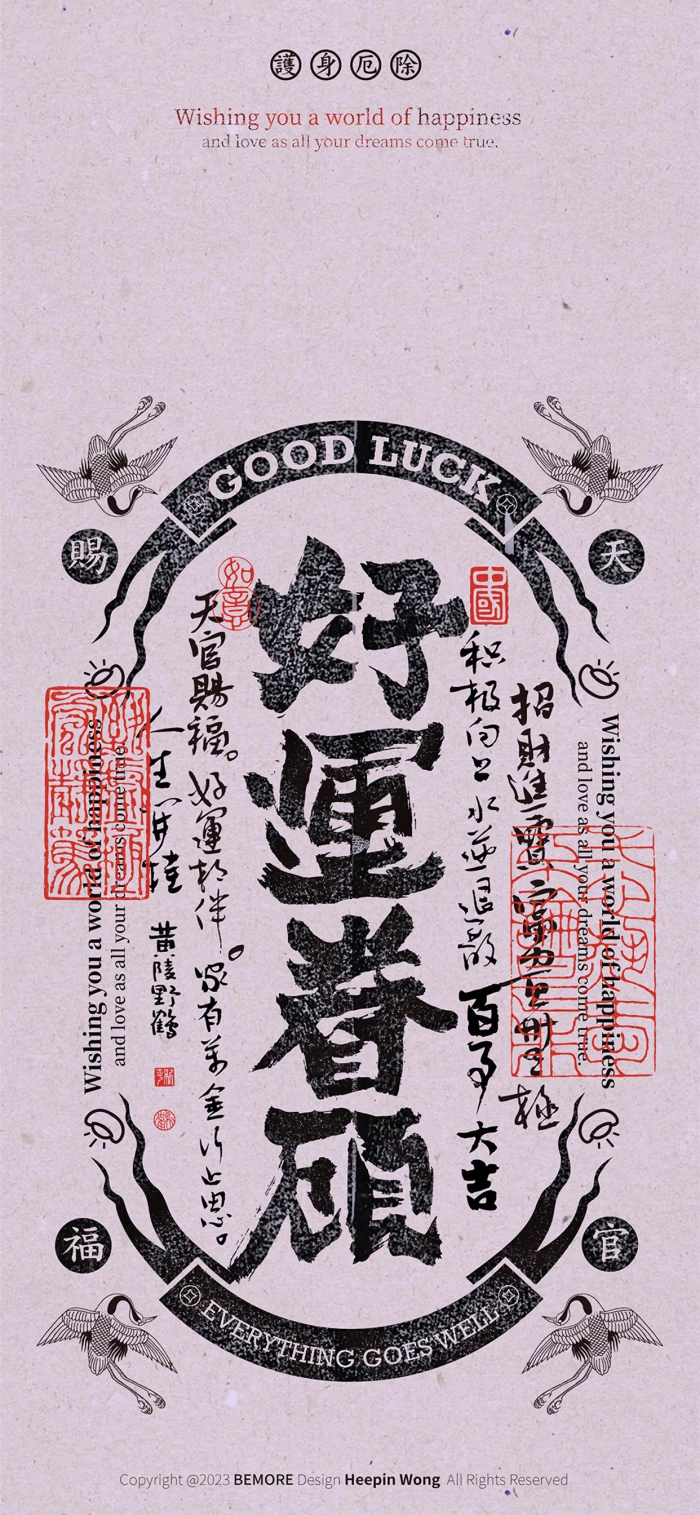 護身厄除
Wishing you a world of happiness
and love as all your dreams come true.
GOOD LUCK
天
官
賜
福
好運眷顧
如意
中國
招財進寶
極
积极向上 水逆退散 百事大吉
天官賜福。好運相伴。家有萬金
人生
黄陵野鶴
Wishing you a world of happiness
and love as all your dreams come true.
Wishing you a world of happiness
and love as all your dreams come true.
EVERYTHING GOES WELL
Copyright @2023 BEMORE Design Heepin Wong All Rights Reserved